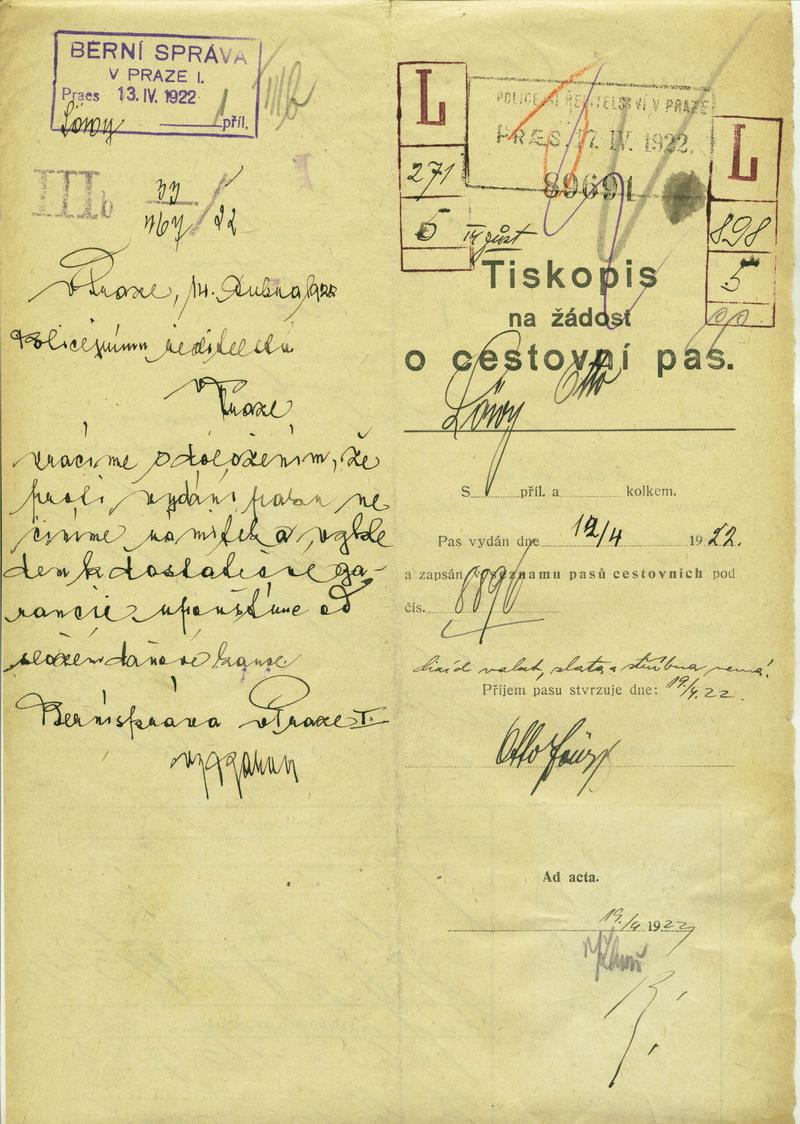 BERNÍ SPRÁVA
V PRAZE I.
Praes 13. IV. 1922
Löwy příl.
IIIb 33
22
v Praze, 14. dubna 1922
Policejnímu ředitelství
v
Praze
vracíme s doložením, že
proti vydání pasu ne
činíme námitek a vzhle
dem k dostatečné ga-
rancie upouštíme od
složení daňové kauce
Berní správa v Praze I.
L
271
5
POLICEJNÍ ŘEDITELSTVÍ V PRAZE
PRÆS. 17. IV. 1922.
89691
L
898
5
Tiskopis
na žádost
o cestovní pas.
Löwy Otto
S příl. a kolkem.
Pas vydán dne 19/4 1922.
a zapsán v seznamu pasů cestovních pod
čís. 889
valut, zlata a stříbra nemá.
Příjem pasu stvrzuje dne: 19/4.22.
Otto Löwy
Ad acta.
19./4 1922